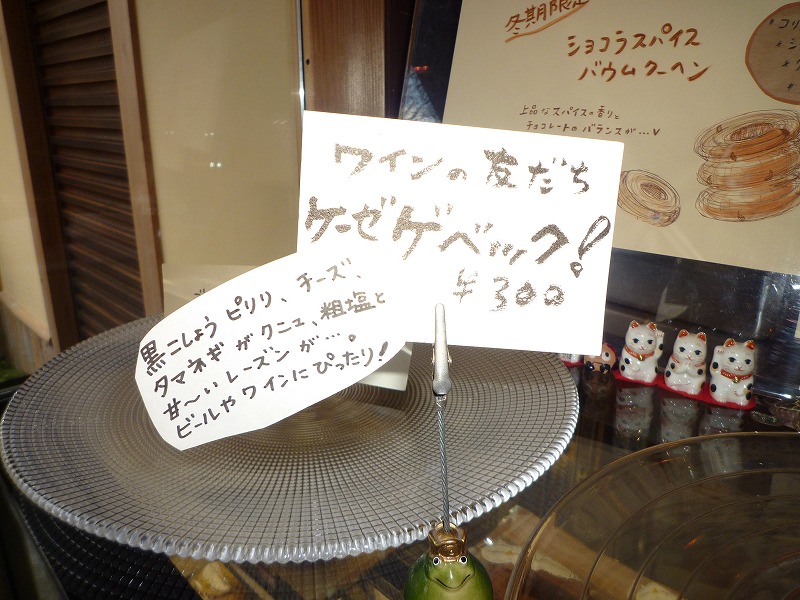 冬期限定
ショコラスパイス
バウムクーヘン
上品なスパイスの香りと
チョコレートのバランスが…
ワインの友だち
ケーゼゲベック!
¥300
黒こしょうピリリ、チーズ、
タマネギがクニュ、粗塩と
甘〜いレーズンが…
ビールやワインにぴったり!